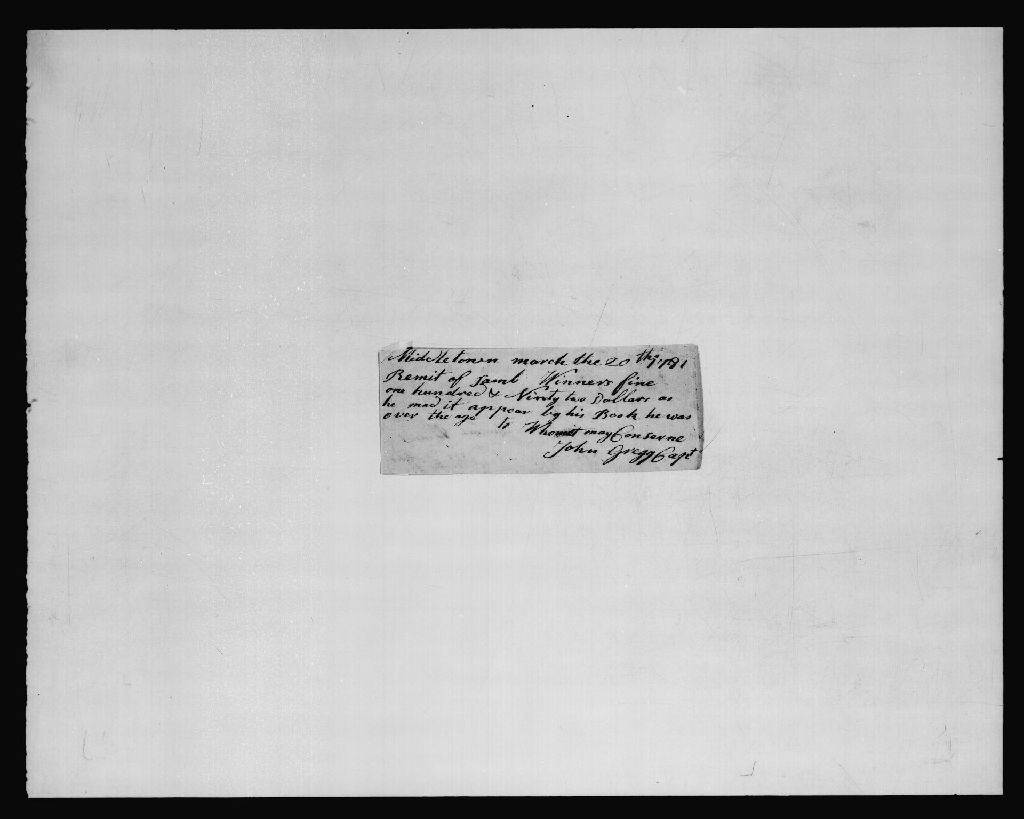 Middletown march the 20th 1781
Remit of Samll Winners fine
one hundred & Ninty two Dollars as
he mad it appear by his Book he was
over the age
to Whomit may Conserne
John Gregg Capt